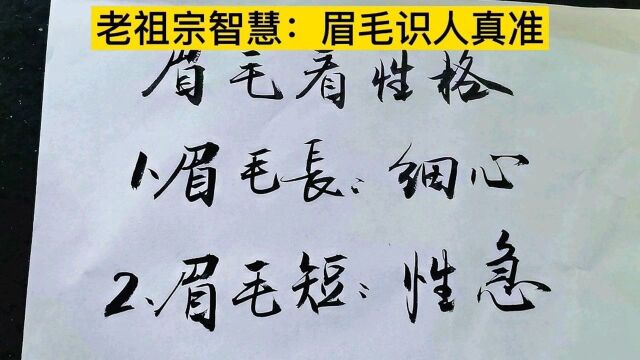 老祖宗智慧：眉毛识人真准
眉毛看性格
1、眉毛長：细心
2、眉毛短：性急